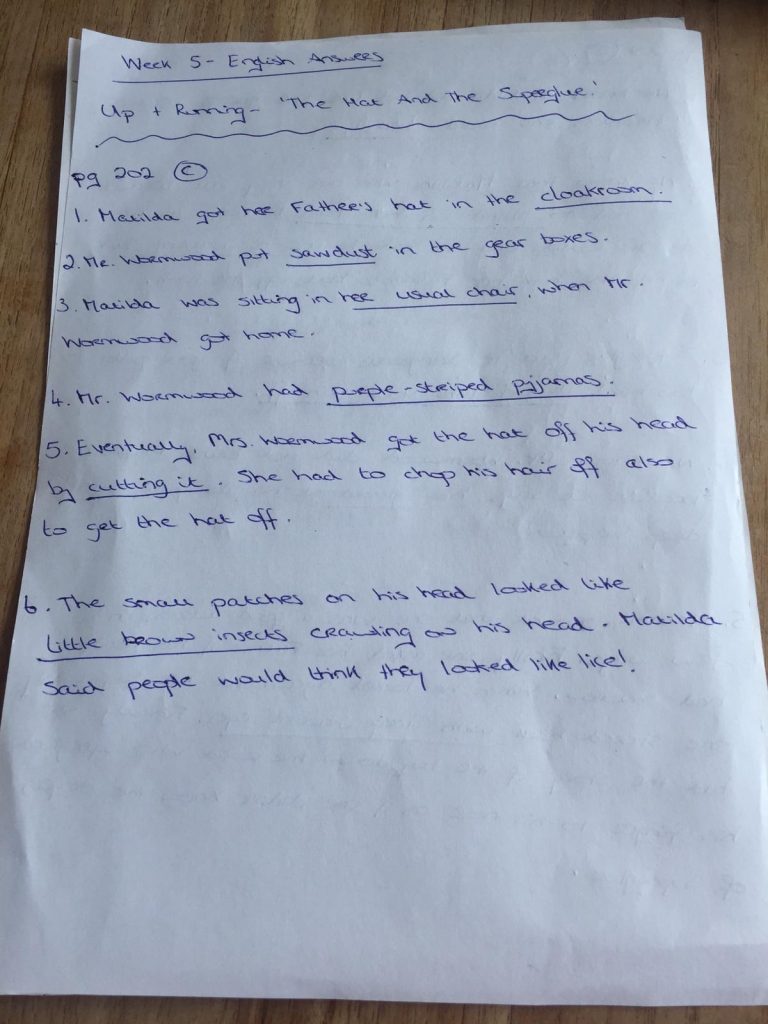 Week 5 - English Answers
Up + Running - 'The Hat And The Superglue.'
pg 202 (C)
1. Matilda got her Father's hat in the cloakroom.
2. Mr. Wormwood put sawdust in the gear boxes.
3. Matilda was sitting in her usual chair, when Mr.
Wormwood got home.
4. Mr. Wormwood had purple-striped pyjamas.
5. Eventually, Mrs. Wormwood got the hat off his head
by cutting it. She had to chop his hair off also
to get the hat off.
6. The small patches on his head looked like
little brown insects crawling on his head. Matilda
said people would think they looked like lice!